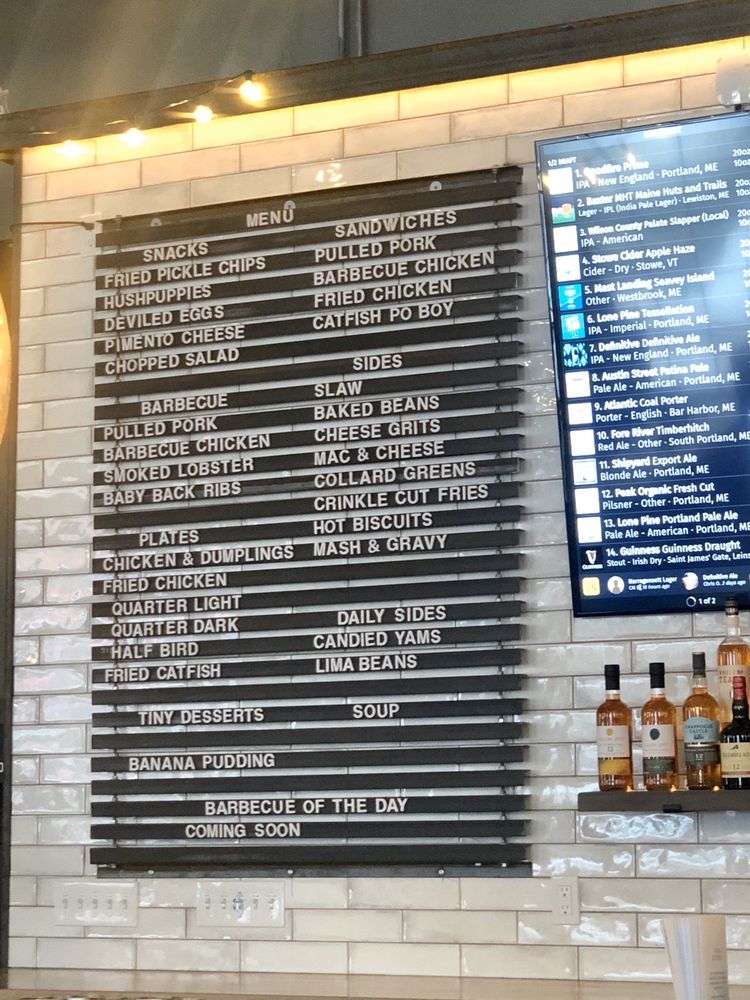 MENU
SNACKS
FRIED PICKLE CHIPS
HUSHPUPPIES
DEVILED EGGS
PIMENTO CHEESE
CHOPPED SALAD
BARBECUE
PULLED PORK
BARBECUE CHICKEN
SMOKED LOBSTER
BABY BACK RIBS
PLATES
CHICKEN & DUMPLINGS
FRIED CHICKEN
QUARTER LIGHT
QUARTER DARK
HALF BIRD
FRIED CATFISH
TINY DESSERTS
BANANA PUDDING
SANDWICHES
PULLED PORK
BARBECUE CHICKEN
FRIED CHICKEN
CATFISH PO BOY
SIDES
SLAW
BAKED BEANS
CHEESE GRITS
MAC & CHEESE
COLLARD GREENS
CRINKLE CUT FRIES
HOT BISCUITS
MASH & GRAVY
DAILY SIDES
CANDIED YAMS
LIMA BEANS
SOUP
BARBECUE OF THE DAY
COMING SOON
1/2 DRAFT
1. Goodfire Prime
IPA - New England · Portland, ME
20oz
10oz
2. Baxter MHT Maine Huts and Trails
Lager - IPL (India Pale Lager) · Lewiston, ME
20oz
10oz
3. Wilson County Palate Slapper (Local)
IPA - American
4. Stowe Cider Apple Haze
Cider - Dry · Stowe, VT
5. Mast Landing Seavey Island
Other · Westbrook, ME
6. Lone Pine Tessellation
IPA - Imperial · Portland, ME
7. Definitive Definitive Ale
IPA - New England · Portland, ME
8. Austin Street Patina Pale
Pale Ale - American · Portland, ME
9. Atlantic Coal Porter
Porter - English · Bar Harbor, ME
10. Fore River Timberhitch
Red Ale - Other · South Portland, ME
11. Shipyard Export Ale
Blonde Ale · Portland, ME
12. Peak Organic Fresh Cut
Pilsner - Other · Portland, ME
13. Lone Pine Portland Pale Ale
Pale Ale - American · Portland, ME
14. Guinness Guinness Draught
Stout - Irish Dry · Saint James' Gate, Leins
GUINNESS
Narragansett Lager
Definitive Ale
1 of 2
12